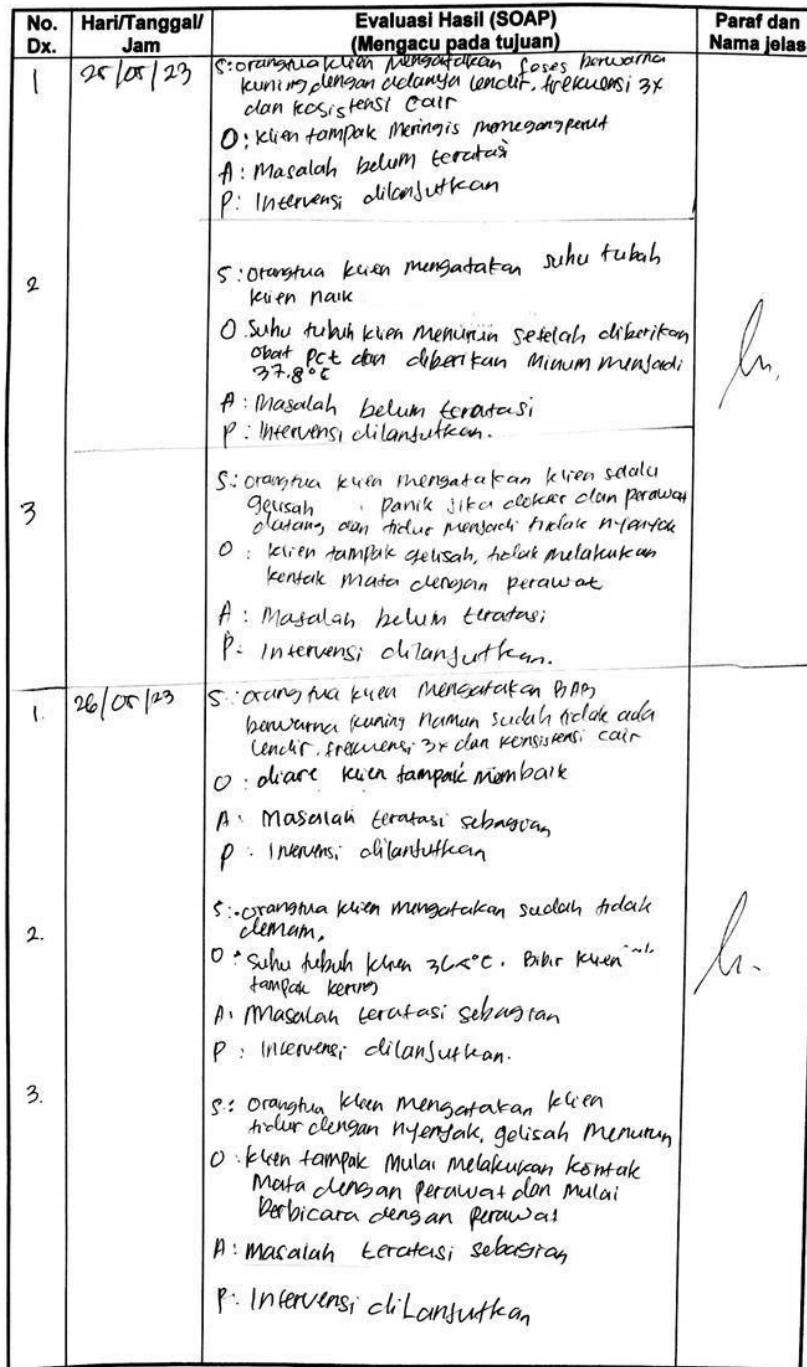 No. Dx.
Hari/Tanggal/ Jam
Evaluasi Hasil (SOAP)
(Mengacu pada tujuan)
Paraf dan Nama jelas
1
25/05/23
S: orangtua klien mengatakan feses berwarna
kuning dengan adanya lendir, frekuensi 3x
dan kosistensi cair
O: klien tampak meringis memegang perut
A: Masalah belum teratasi
P: Intervensi dilanjutkan
2
S: orangtua klien mengatakan suhu tubuh
klien naik
O suhu tubuh klien menurun setelah diberikan
obat pct dan diberikan minum menjadi
37.8°C
A: Masalah belum teratasi
P: Intervensi dilanjutkan.
3
S: orangtua klien mengatakan klien selalu
gelisah panik jika dokter dan perawat
datang dan tidur menjadi tidak nyenyak
O: klien tampak gelisah, tidak melakukan
kontak mata dengan perawat
A: Masalah belum teratasi
P: Intervensi dilanjutkan.
1.
26/05/23
S: orang tua klien mengatakan BAB
berwarna kuning namun sudah tidak ada
lendir, frekuensi 3x dan konsistensi cair
O: diare klien tampak membaik
A: Masalah teratasi sebagian
P: Intervensi dilanjutkan
2.
S: orangtua klien mengatakan sudah tidak
demam,
O: suhu tubuh klien Bibir klien
tampak kering
A: Masalah teratasi sebagian
P: Intervensi dilanjutkan.
3.
S: Orangtua klien mengatakan klien
tidur dengan nyenyak, gelisah menurun
O: klien tampak mulai melakukan kontak
mata dengan perawat dan mulai
berbicara dengan perawat
A: Masalah teratasi sebagian
P: Intervensi dilanjutkan